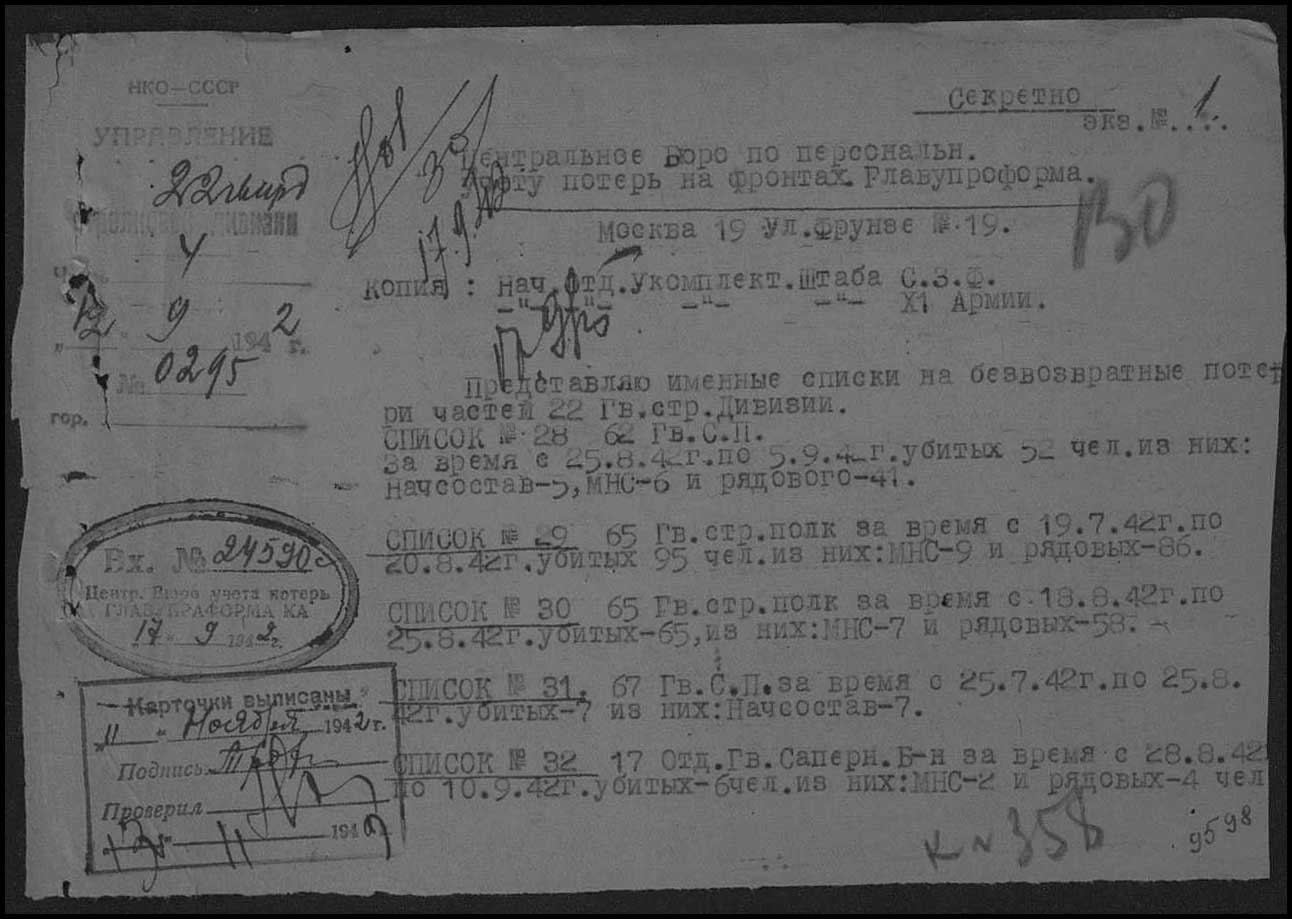 НКО—СССР
УПРАВЛЕНИЕ
22 гвард
стрелковой дивизии
4
"12" 9 1942 г.
№ 0295
гор.
17.9.
Секретно
экз.№ 1
Центральное Бюро по персональн.
учету потерь на фронтах Главупроформа.
Москва 19 ул.Фрунзе № 19.
ВО
Копия : Нач.отд.Укомплект.Штаба С.З.Ф.
-"- -"- -"- -"- Х1 Армии.
Представляю именные списки на безвозвратные поте
ри частей 22 Гв.стр.Дивизии.
СПИСОК № 28 62 Гв.С.П.
За время с 25.8.42г.по 5.9.42г.убитых 52 чел.из них:
Начсостав-5,МНС-6 и рядового-41.
СПИСОК № 29 65 Гв.стр.полк за время с 19.7.42г.по
20.8.42г.убитых 95 чел.из них:МНС-9 и рядовых-86.
СПИСОК № 30 65 Гв.стр.полк за время с 18.8.42г.по
25.8.42г.убитых-65,из них:МНС-7 и рядовых-58.
СПИСОК № 31. 67 Гв.С.П.за время с 25.7.42г.по 25.8.
42г.убитых-7 из них:Начсостав-7.
СПИСОК № 32 17 Отд.Гв.Саперн.Б-н за время с 28.8.42
по 10.9.42г.убитых-6чел.из них:МНС-2 и рядовых-4 чел
Вх. № 24590с
Центр. Бюро учета потерь
ГЛАВУПРАФОРМА КА
"17" 9 1942г.
Карточки выписаны
"11" Ноября 1942 г.
Подпись
Проверил
"13" 11 1942
к № 358
9598